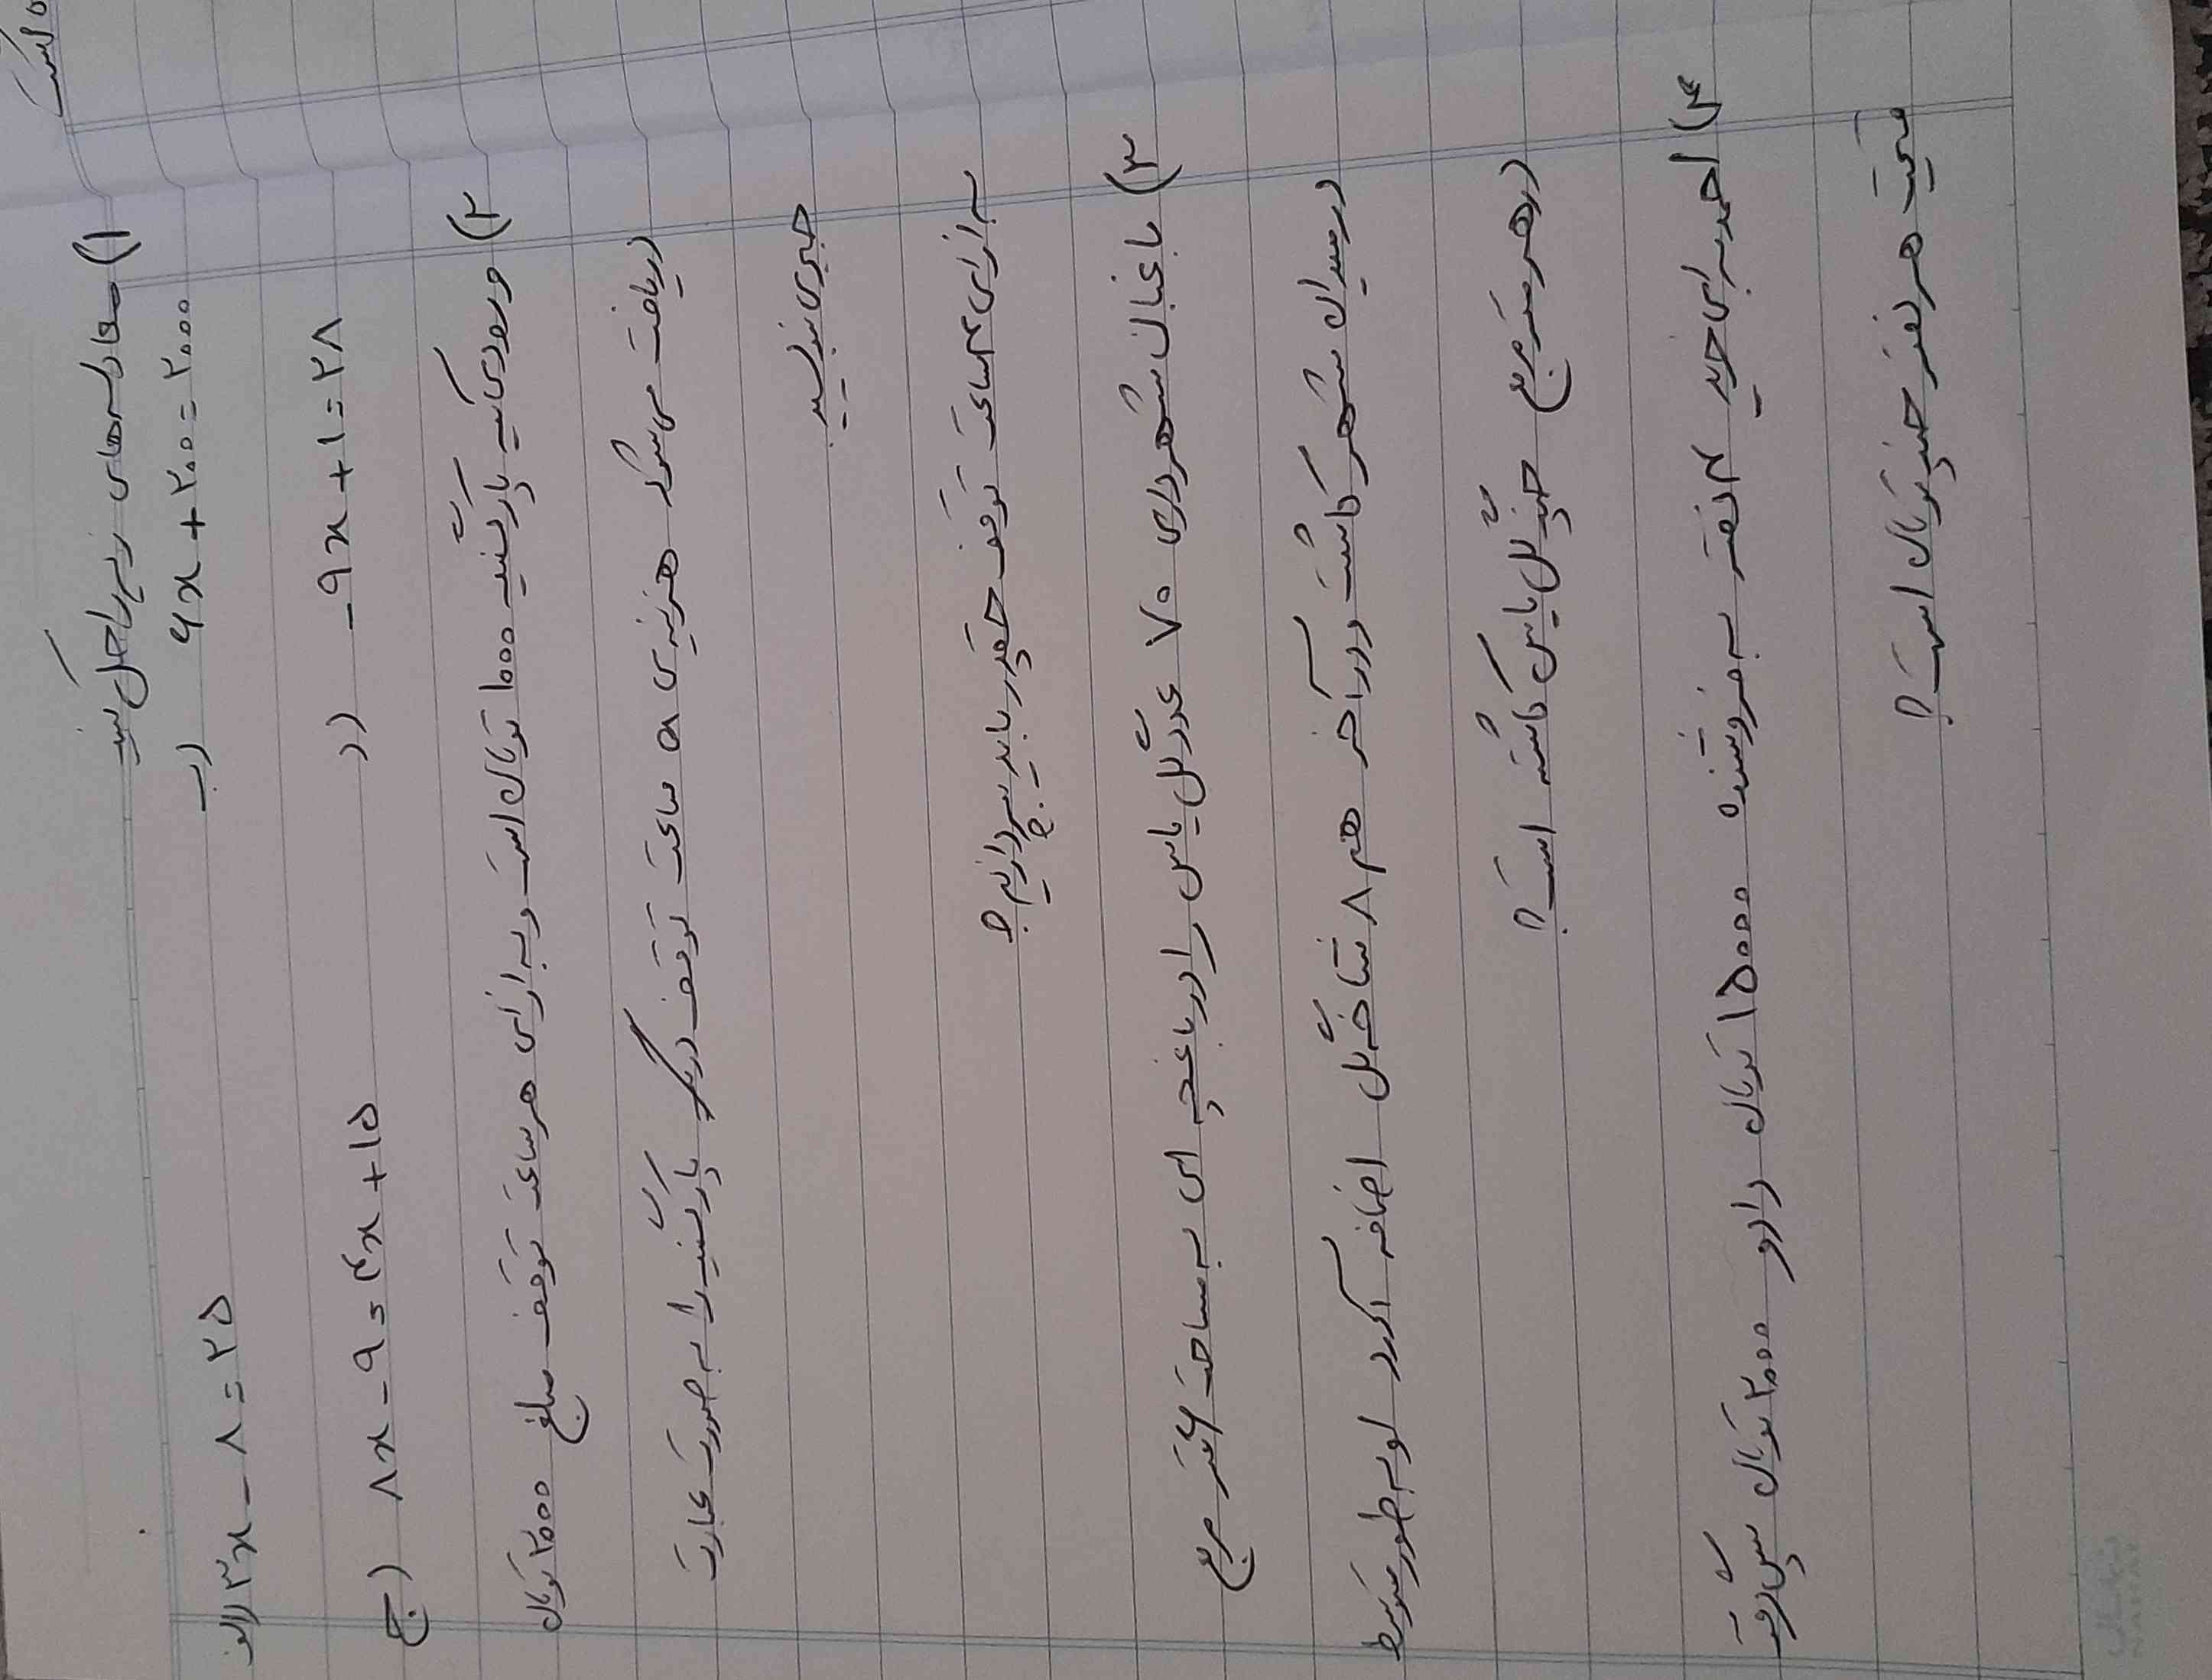 ۱) معادله‌های زیر را حل کنید
الف) ۳x - ۸ = ۲۵ ب) ۶x + ۲۰۰ = ۲۰۰۰
ج) ۸x - ۹ = ۴x + ۱۵ د) -۹x + ۱ = ۲۸
۲) ورودی یک پارکینگ ۱۰۰۰ تومان است و به ازای هر ساعت توقف مبلغ ۲۰۰۰ تومان
دریافت می شود هزینه ی ۵ ساعت توقف در یک پارکینگ را به صورت عبارت
جبری بنویسید.
به ازای ۳ ساعت توقف چقدر باید بپردازیم؟
۳) باغبان شهرداری ۷۰ عدد گل یاس را در باغچه ای به مساحت ۶ متر مربع
در میدان شهر کاشت و در آخر هم ۸ شاخه گل اضافه آورد او به طور متوسط
در هر متر مربع چند گل یاس کاشته است؟
۴) احمد برای خرید ۴ دفتر به فروشنده ۱۵۰۰۰ تومان داد و ۳۰۰۰ تومان پس گرفت
قیمت هر دفتر چند تومان است؟